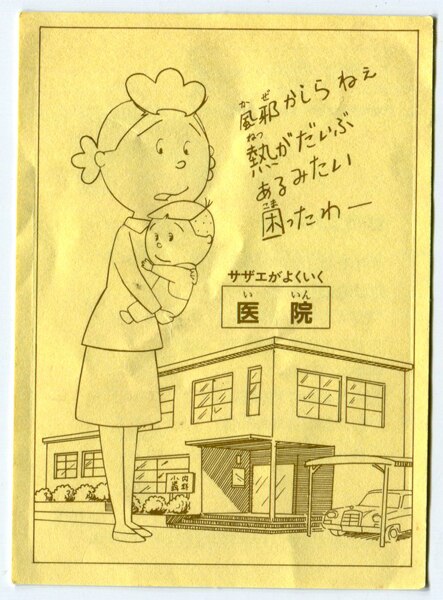 風邪かしらねぇ
熱がだいぶ
あるみたい
困ったわー
サザエがよくいく
医院
内科
小児科